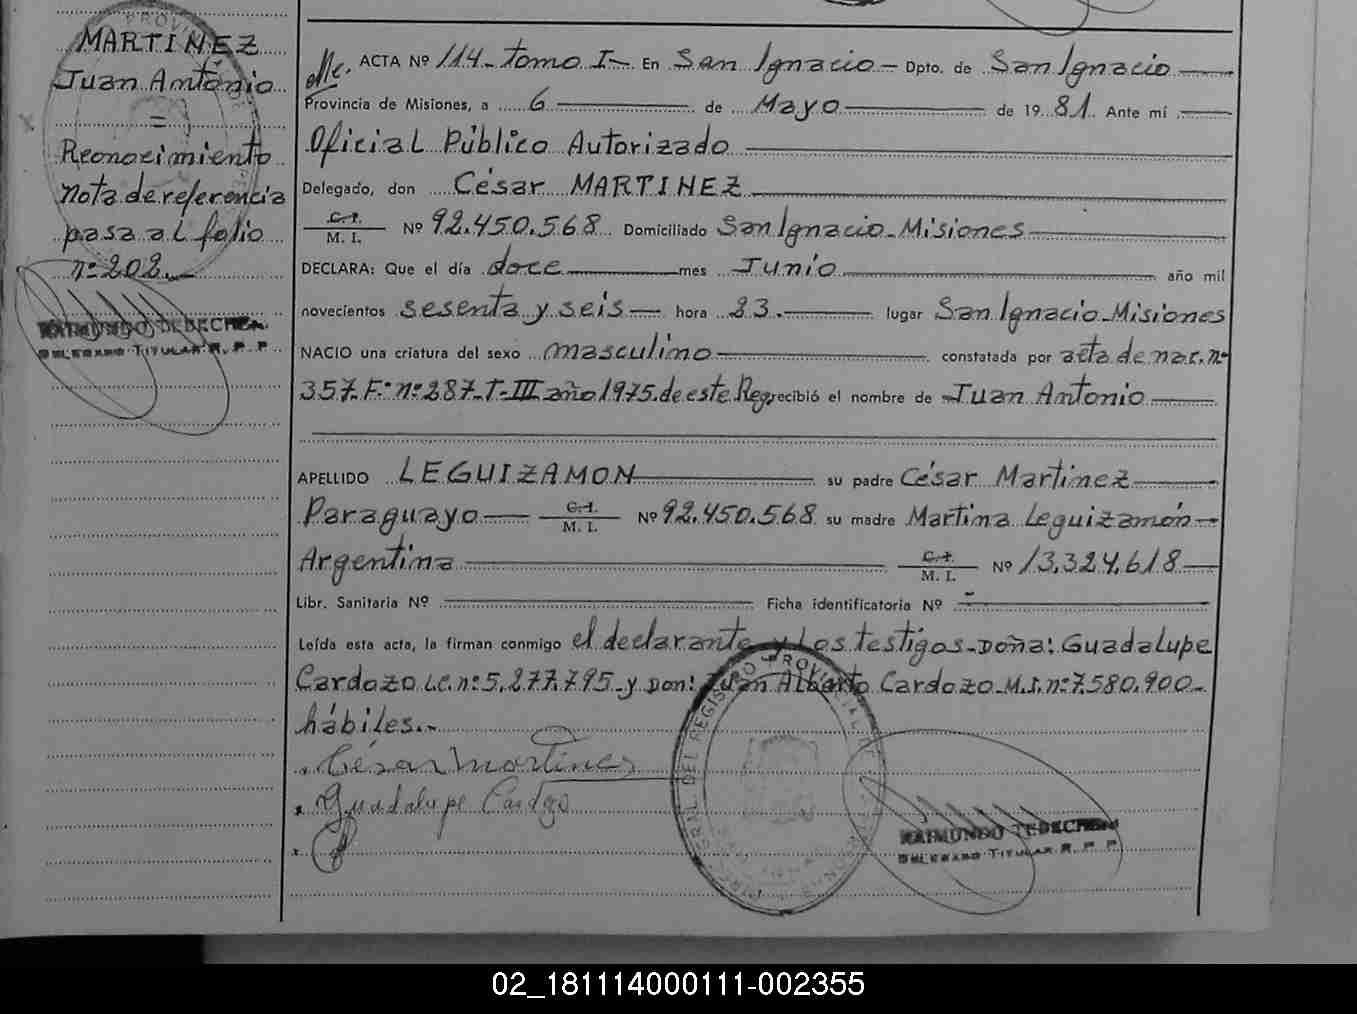 MARTINEZ
Juan Antonio
=
Reonocimiento
nota de referencia
pasa al folio
nº 202.
RAIMUNDO TEDECHEN
DELEGADO TITULAR R. P. P.
ACTA Nº 114 - tomo I - En San Ignacio - Dpto. de San Ignacio
Provincia de Misiones, a 6 de Mayo de 1981. Ante mí
Oficial Público Autorizado
Delegado, don César MARTINEZ
C. I. / M. I. Nº 92.450.568 Domiciliado San Ignacio - Misiones
DECLARA: Que el día doce mes Junio año mil
novecientos sesenta y seis - hora 23. lugar San Ignacio - Misiones
NACIO una criatura del sexo masculino constatada por acta de nac. nº
357. Fº nº 287 - T - III año 1975. de este Reg. recibió el nombre de Juan Antonio
APELLIDO LEGUIZAMON su padre César Martinez
Paraguayo C. I. / M. I. Nº 92.450.568 su madre Martina Leguizamón
Argentina C. I. / M. I. Nº 13.324.618
Libr. Sanitaria Nº Ficha identificatoria Nº
Leída esta acta, la firman conmigo el declarante y los testigos - Doña: Guadalupe
Cardozo L.C. nº 5.277.795 - y Don: Juan Alberto Cardozo M.I. nº 7.580.900 -
hábiles. -
César Martines
Guadalupe Cardozo
DEL REGISTRO PROVINCIAL
RAIMUNDO TEDECHEN
DELEGADO TITULAR R. P. P.
02_181114000111-002355